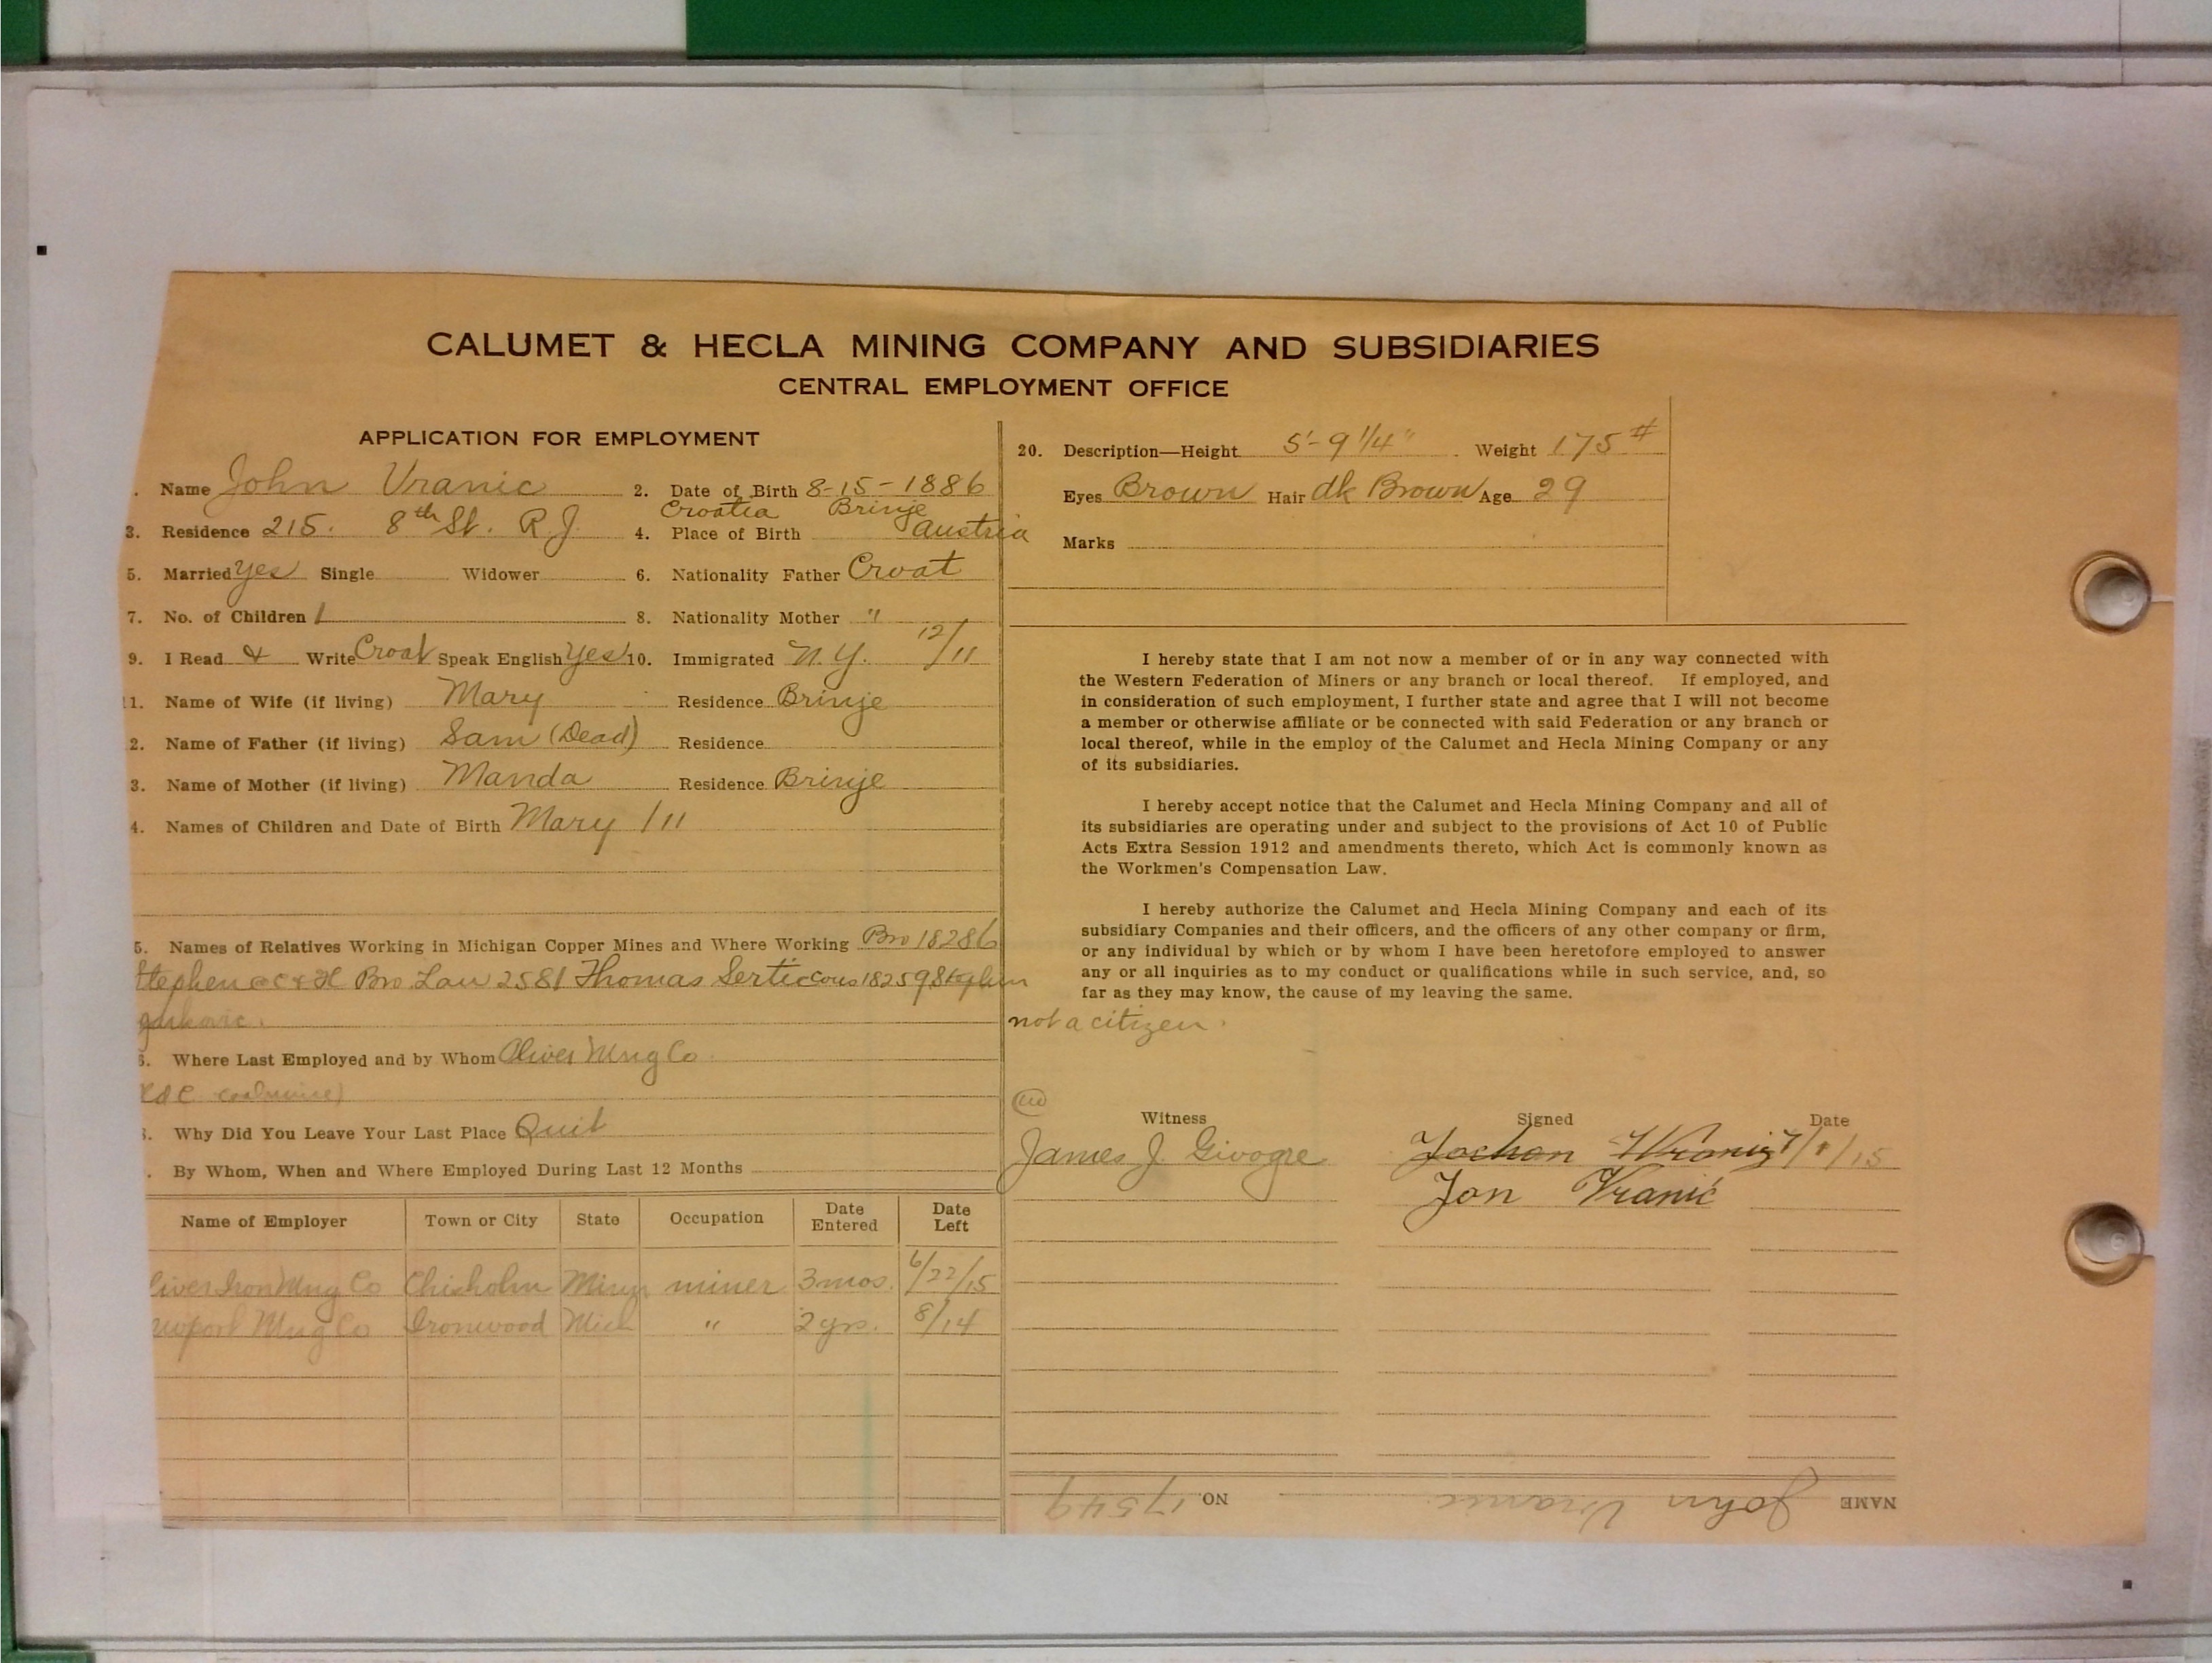 CALUMET & HECLA MINING COMPANY AND SUBSIDIARIES
CENTRAL EMPLOYMENT OFFICE
APPLICATION FOR EMPLOYMENT
. Name John Vranic 2. Date of Birth 8-15-1886
Croatia Brinje
3. Residence 215. 8th St. R.J. 4. Place of Birth Austria
5. Married Yes Single Widower 6. Nationality Father Croat
7. No. of Children 1 8. Nationality Mother "
9. I Read & Write Croat Speak English Yes 10. Immigrated N.Y. 12/11
11. Name of Wife (if living) Mary Residence Brinje
2. Name of Father (if living) Sam (Dead) Residence
3. Name of Mother (if living) Manda Residence Brinje
4. Names of Children and Date of Birth Mary / 11
5. Names of Relatives Working in Michigan Copper Mines and Where Working Bro 18286
Stephen C & H Bro. Law 2581 Thomas Sertic Cous 18259 Stephen
6. Where Last Employed and by Whom Oliver Mng Co
Why Did You Leave Your Last Place Quit
. By Whom, When and Where Employed During Last 12 Months
Name of Employer Town or City State Occupation Date Entered Date Left
liver Iron Mng Co Chisholm Minn miner 3 mos. 6/22/15
ewport Mng Co Ironwood Mich " 2 yrs. 8/14
20. Description—Height 5'-9 1/4" Weight 175#
Eyes Brown Hair dk Brown Age 29
Marks
I hereby state that I am not now a member of or in any way connected with
the Western Federation of Miners or any branch or local thereof. If employed, and
in consideration of such employment, I further state and agree that I will not become
a member or otherwise affiliate or be connected with said Federation or any branch or
local thereof, while in the employ of the Calumet and Hecla Mining Company or any
of its subsidiaries.
I hereby accept notice that the Calumet and Hecla Mining Company and all of
its subsidiaries are operating under and subject to the provisions of Act 10 of Public
Acts Extra Session 1912 and amendments thereto, which Act is commonly known as
the Workmen's Compensation Law.
I hereby authorize the Calumet and Hecla Mining Company and each of its
subsidiary Companies and their officers, and the officers of any other company or firm,
or any individual by which or by whom I have been heretofore employed to answer
any or all inquiries as to my conduct or qualifications while in such service, and, so
far as they may know, the cause of my leaving the same.
not a citizen.
Witness Signed Date
James J. Givogre 7/1/15
Jon Vranić
NAME John Vranic NO. 17549